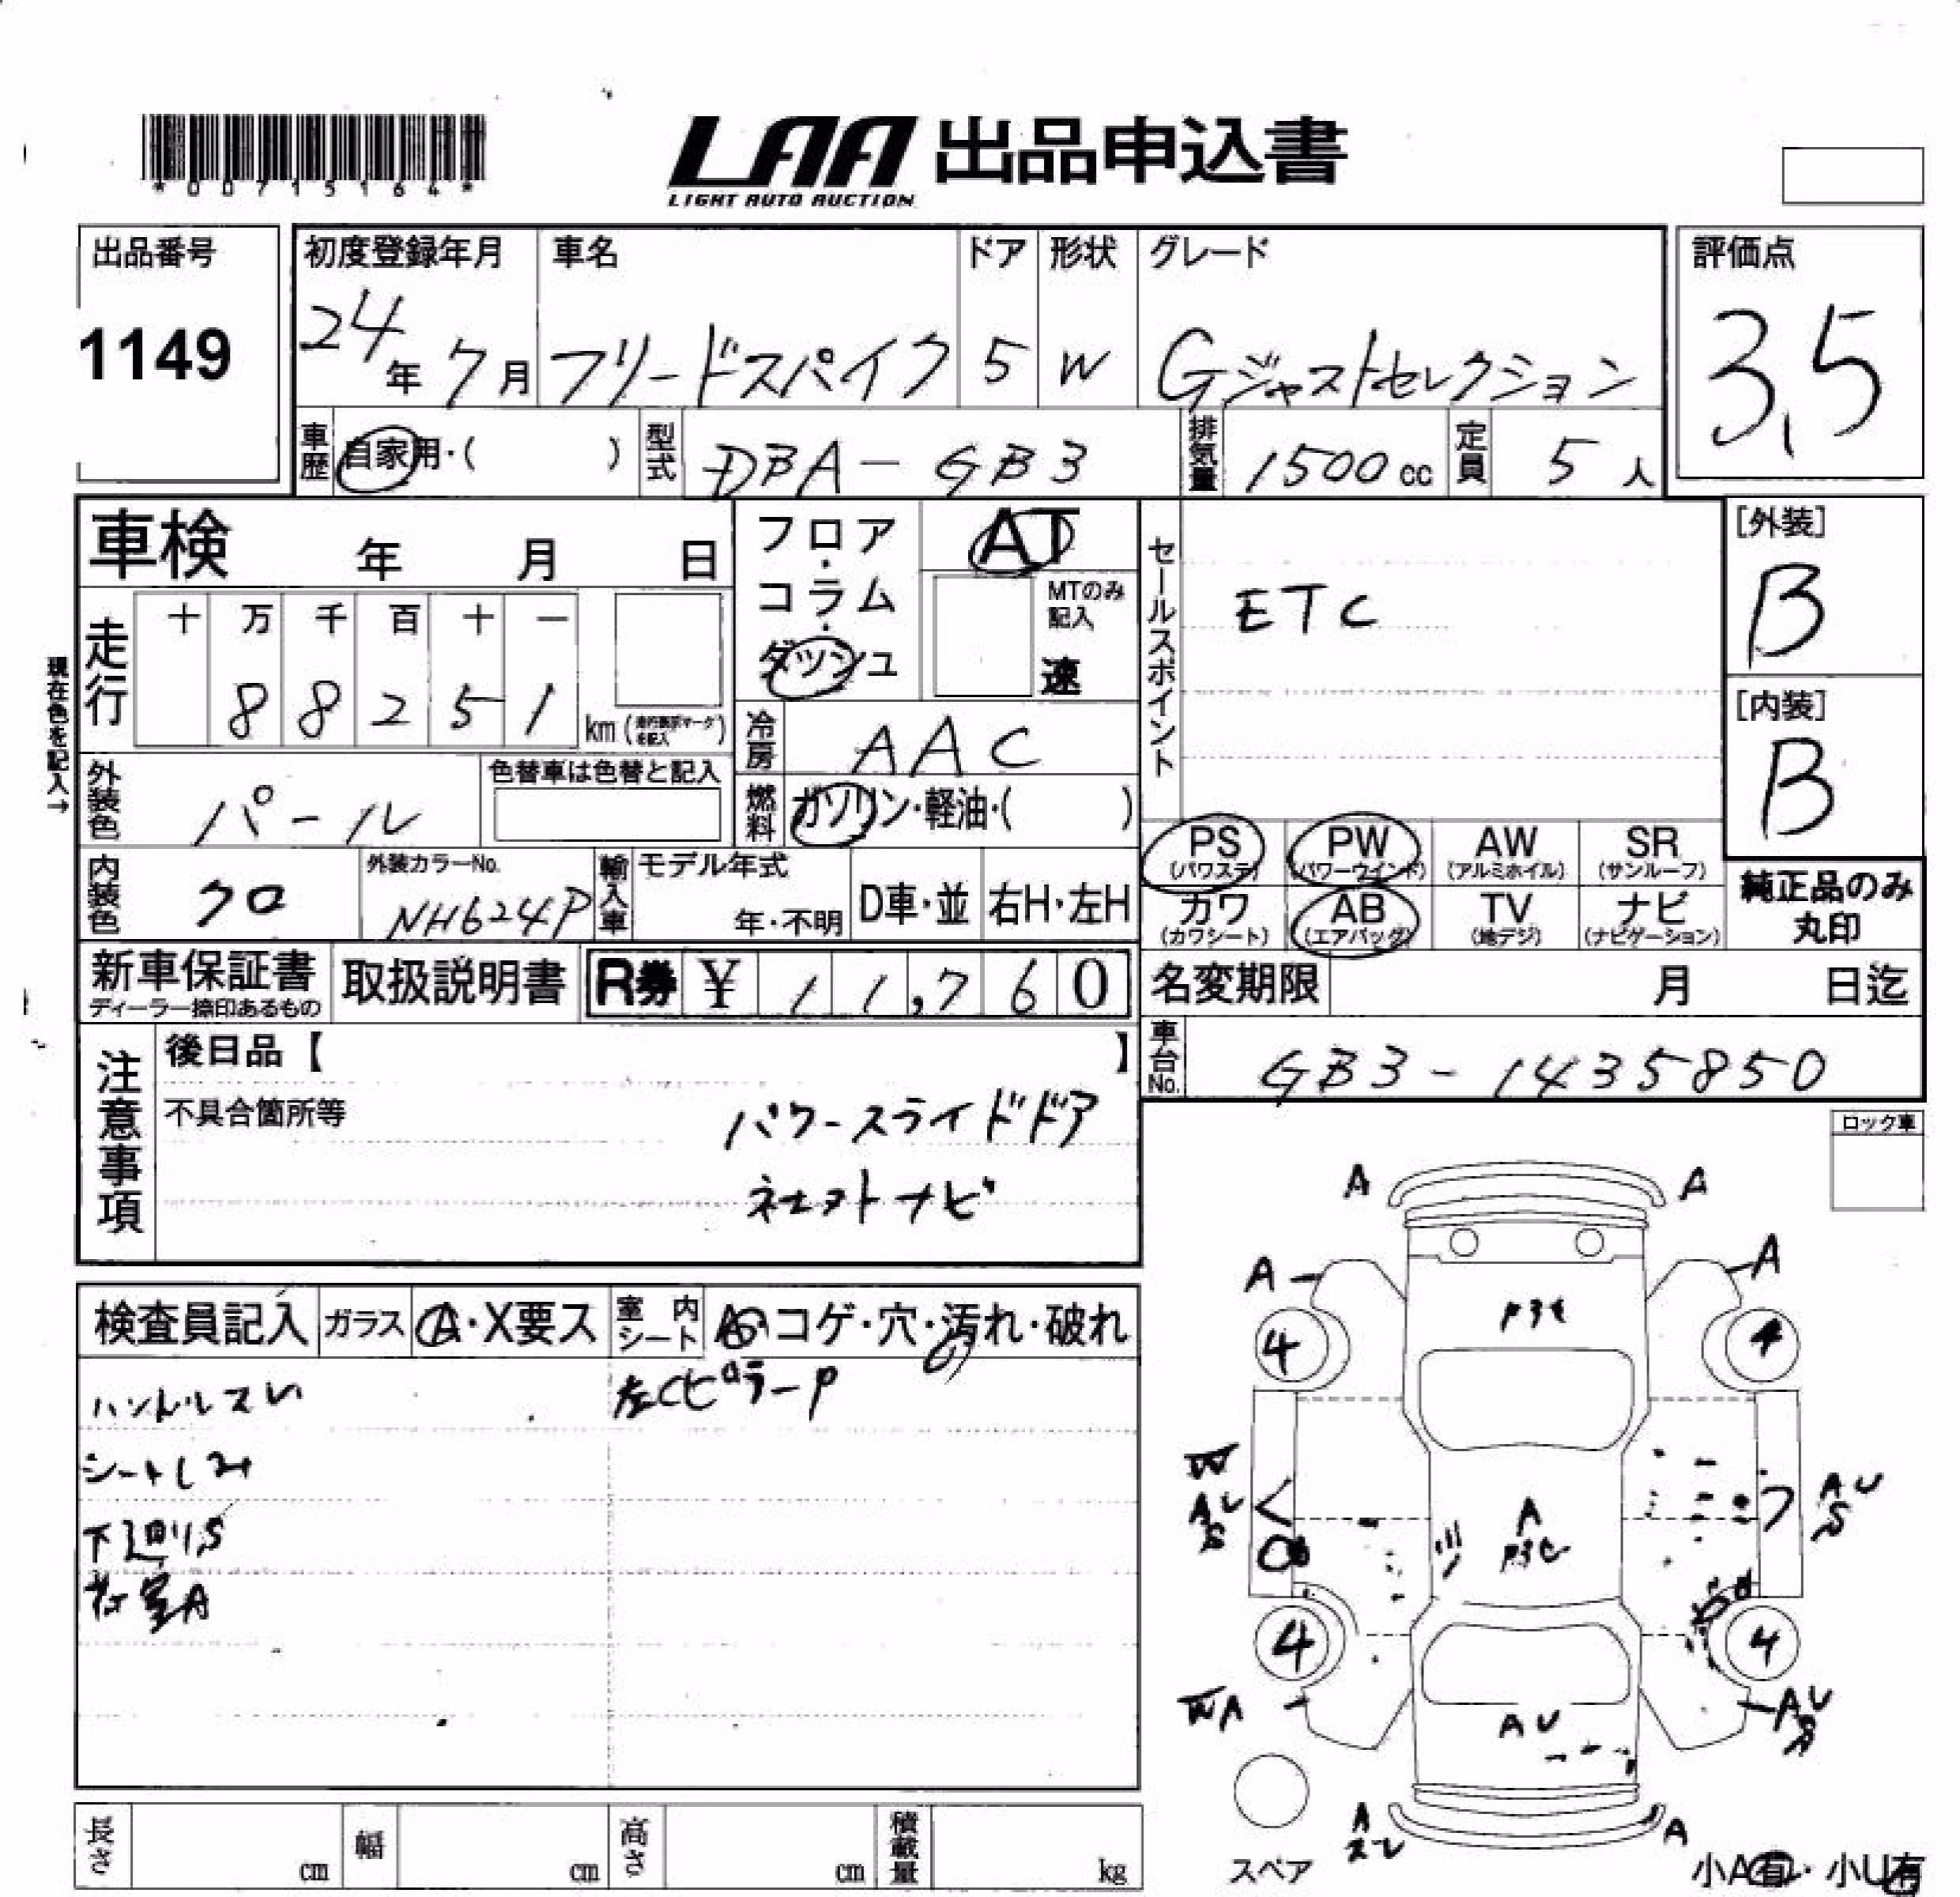 *00715164*
LAA 出品申込書
LIGHT AUTO AUCTION
出品番号
1149
初度登録年月
24年7月
車名
フリードスパイク
ドア
5
形状
W
グレード
Gジャストセレクション
評価点
3.5
車歴
自家用・( )
型式
DBA-GB3
排気量
1500cc
定員
5人
車検 年 月 日
フロア・コラム・ダッシュ
AT
MTのみ記入
速
セールスポイント
ETC
[外装]
B
[内装]
B
現在色を記入→
走行
十 万 千 百 十 一
8 8 2 5 1
km
冷房
AAC
外装色
パール
色替車は色替と記入
燃料
ガソリン・軽油・( )
PS
(パワステ)
PW
(パワーウインド)
AW
(アルミホイル)
SR
(サンルーフ)
カワ
(カワシート)
AB
(エアバッグ)
TV
(地デジ)
ナビ
(ナビゲーション)
純正品のみ丸印
内装色
クロ
外装カラーNo.
NH624P
輸入車
モデル年式
年・不明
D車・並
右H・左H
新車保証書
ディーラー捺印あるもの
取扱説明書
R券 ¥ 11,760
名変期限 月 日迄
車台No.
GB3-1435850
注意事項
後日品【 】
不具合箇所等
パワースライドドア
ネットナビ
ロック車
検査員記入
ガラス
A・X要ス
室内シート
コゲ・穴・汚れ・破れ
ハンドルスレ
左CピラーP
シートしみ
下廻りS
荷室A
A A
A A
4 4
W
AU
S
A
AU
S
4 4
WA
AU
AU
S
A
スレ
A
スペア
小A有・小U有
長さ cm
幅 cm
高さ cm
積載量 kg